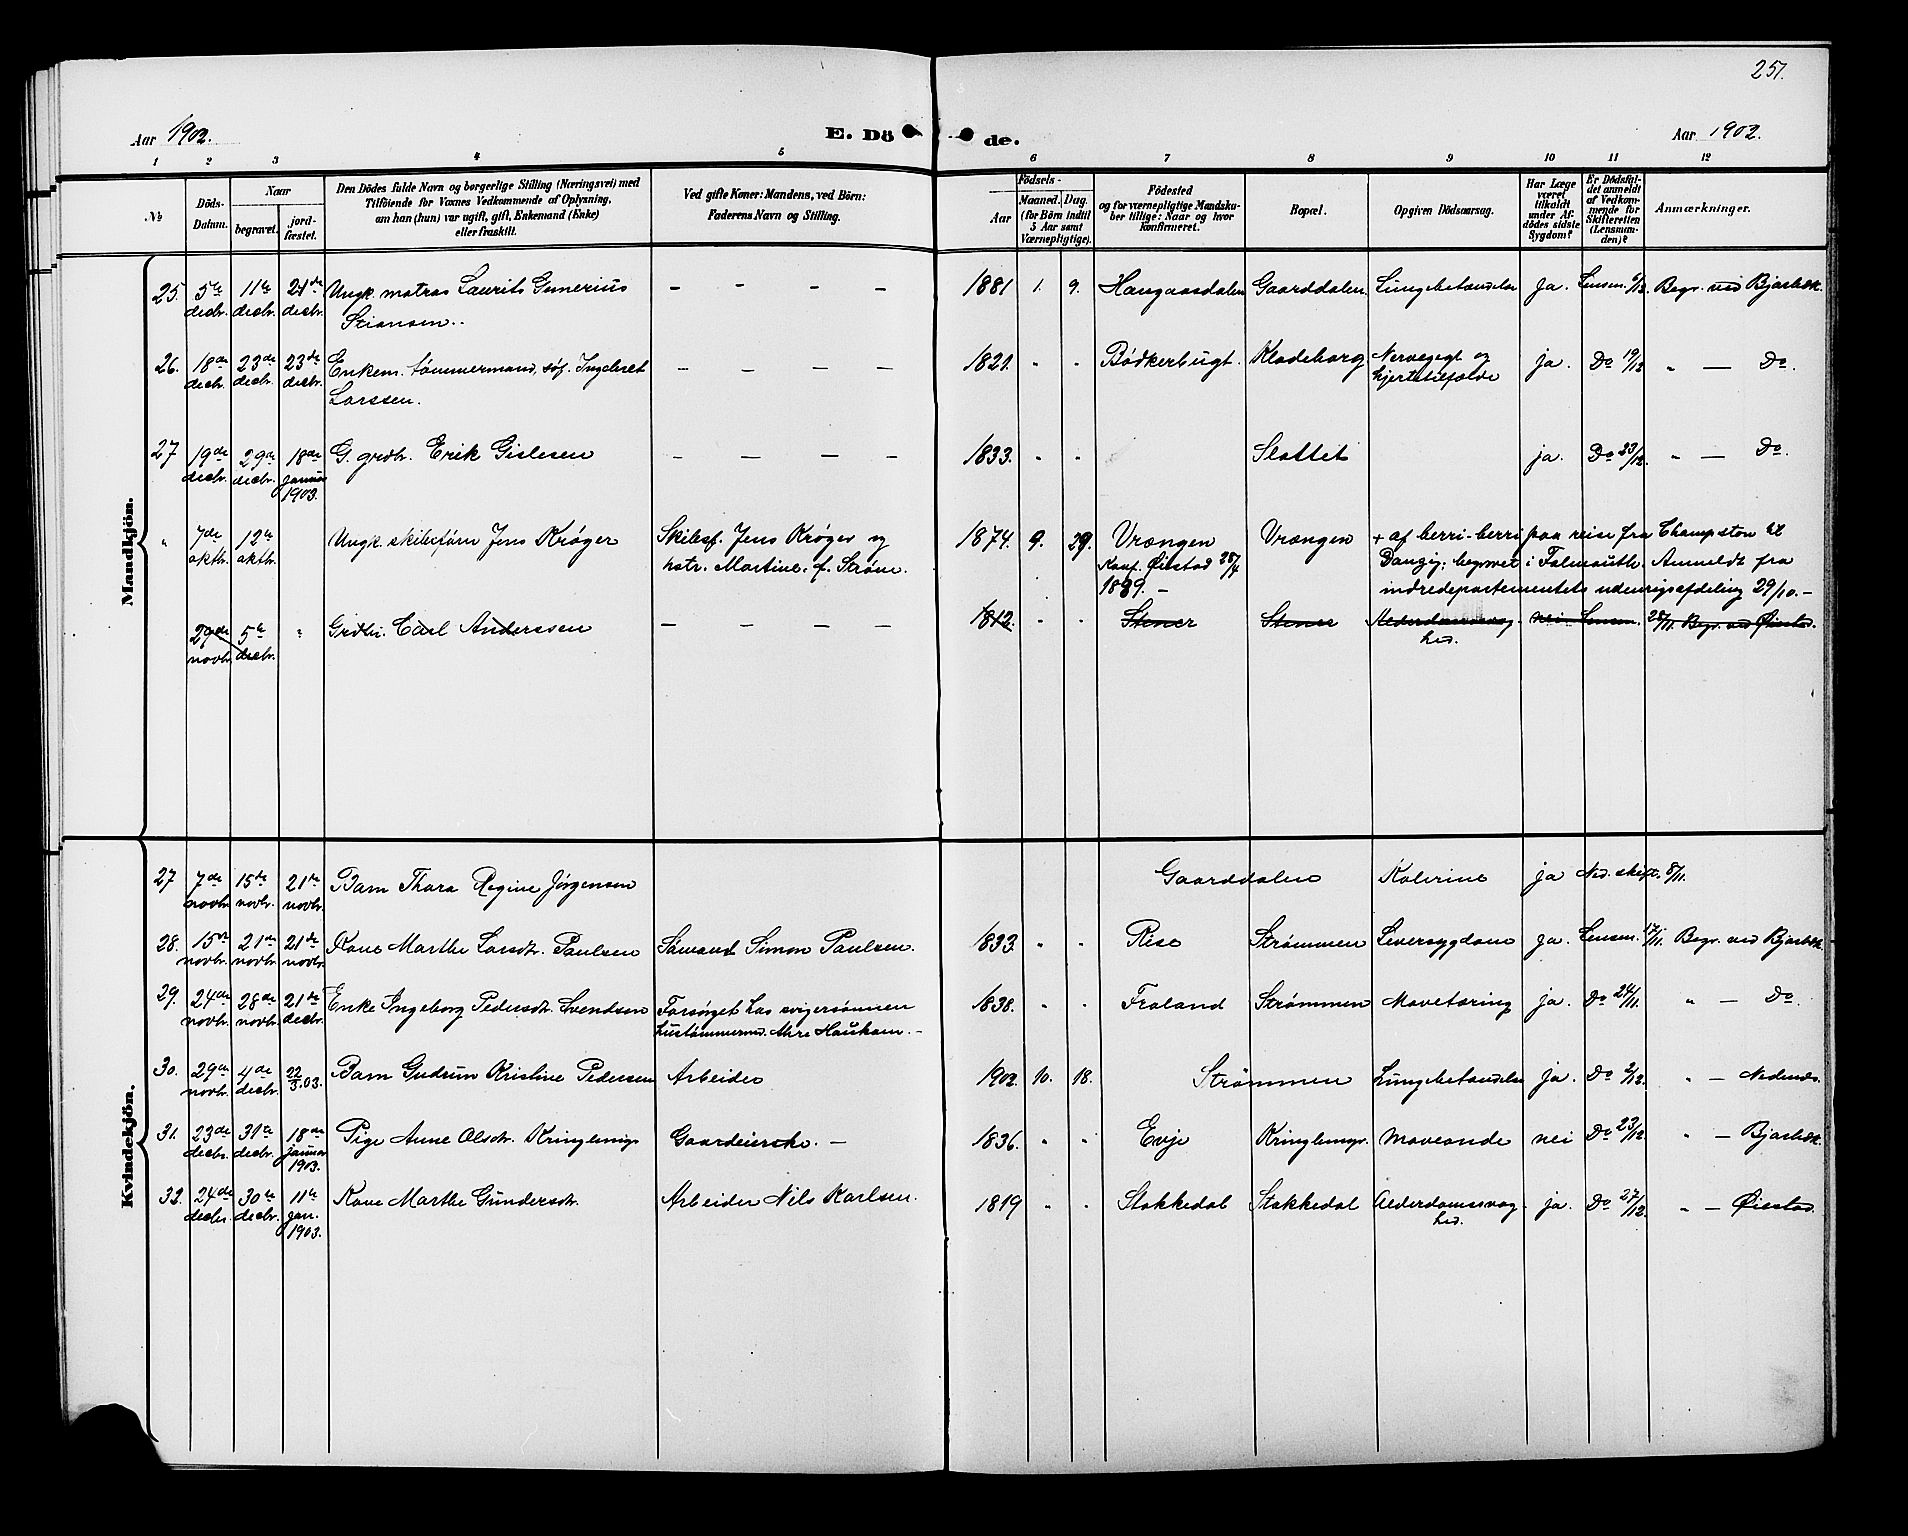 251.
Aar 1902. E. Dö de. Aar 1902.
1 2 3 4 5 6 7 8 9 10 11 12
№
Döds-Datum.
Naar
begravet.
jord-fæstet.
Den Dödes fulde Navn og borgerlige Stilling (Næringsvei) med
Tilföiende for Voxnes Vedkommende af Oplysning,
om han (hun) var ugift, gift, Enkemand (Enke)
eller fraskilt.
Ved gifte Koner: Mandens, ved Börn:
Faderens Navn og Stilling.
Födsels-
Aar
Maaned. Dag.
(for Börn indtil
5 Aar samt
Værnepligtige).
Födested
og for værnepligtige Mandska-
ber tillige: Naar og hvor
konfirmeret.
Bopæl.
Opgiven Dödsaarsag.
Har Læge
været
tilkaldt
under Af-
dödes sidste
Sygdom?
Er Dödsfal-
det anmeldt
af Vedkom-
mende for
Skifteretten
(Lensman-
den)?
Anmærkninger.
Mandkjön.
25. 5te decbr. 11te decbr. 21de decbr. Ungk. matros Laurits Gunerius — — — — 1881 1. 9. Haugaasdalen Gaarddalen Lungebetændelse ja. Lensm. 6/12. Begr. ved Bjorbæk.
Stiansen.
26. 18de decbr. 23de decbr. 23de decbr. Enkem. tømmermand, søf. Ingebret — — — — 1821. " " Bødkerbugt. Kladeborg Nervegigt og ja. Do 19/12 " — Do.
Larssen. hjertetilfælde
27 19de decbr. 29de decbr. 18de januar 1903. G. grdbr. Erik Gislesen — — — — 1833. " " Slottet ja. Do 23/12. " — Do.
" 7de oktbr. 12te oktbr. Ungk. skibsfører Jens Krøger Skibsf. Jens Krøger og 1874. 9. 29. Vrængen Vrængen + af berri-berri paa reise fra Champston til
hstr. Martine. f. Strøm. Konf. Øiestad 28/4 Danzig; begravet i Falmouth. Anmeldt fra
1889. — indredepartementets udenrigsafdeling 29/10. —
29de novbr. 5te decbr. " Grdbr. Carl Anderssen — — — — 1812. " " Stener Stener Alderdomssvag- nei Lensm. 28/11. Begr. ved Øiestad.
hed.
Kvindekjön.
27 7de novbr. 15de novbr. 21de novbr. Barn Thora Regine Jørgensen Gaarddalen Kolerine ja Ned. skift. 8/11.
28. 15de novbr. 21de novbr. 21de novbr. Kone Marthe Larsdtr. Paulsen Sømand Simon Paulsen. 1833. " " Rise Strømmen Leversygdom ja. Lensm. 17/11. Begr. ved Bjorbæk
29. 24de novbr. 28de novbr. 21de decbr. Enke Ingeborg Pedersdtr. Svendsen Forsørget hos svigersønnen 1838. " " Froland Strømmen Mavetæring ja. Do 24/11. " — Do.
hustømmermd. Haukom. —
30. 29de novbr. 4de decbr. 22/3.03. Barn Gudrun Kristine Pedersen Arbeider 1902. 10. 18. Strømmen Lungebetændelse ja. Do 2/12. " — Nedenes.
31. 23de decbr. 31te decbr. 18de januar 1903. Pige Anne Olsdtr. Kringlemyr Gaardeierske. — 1836. " " Evje Kringlemyr. Maveonde nei Do 23/12. " — Bjorbæk.
32. 24de decbr. 30te decbr. 11te jan. 1903. Kone Marthe Gundersdtr. Arbeider Nils Karlsen. 1819 " " Stokkedal Stokkedal Alderdomssvag- ja. Do 27/12. " — Øiestad.
hed.